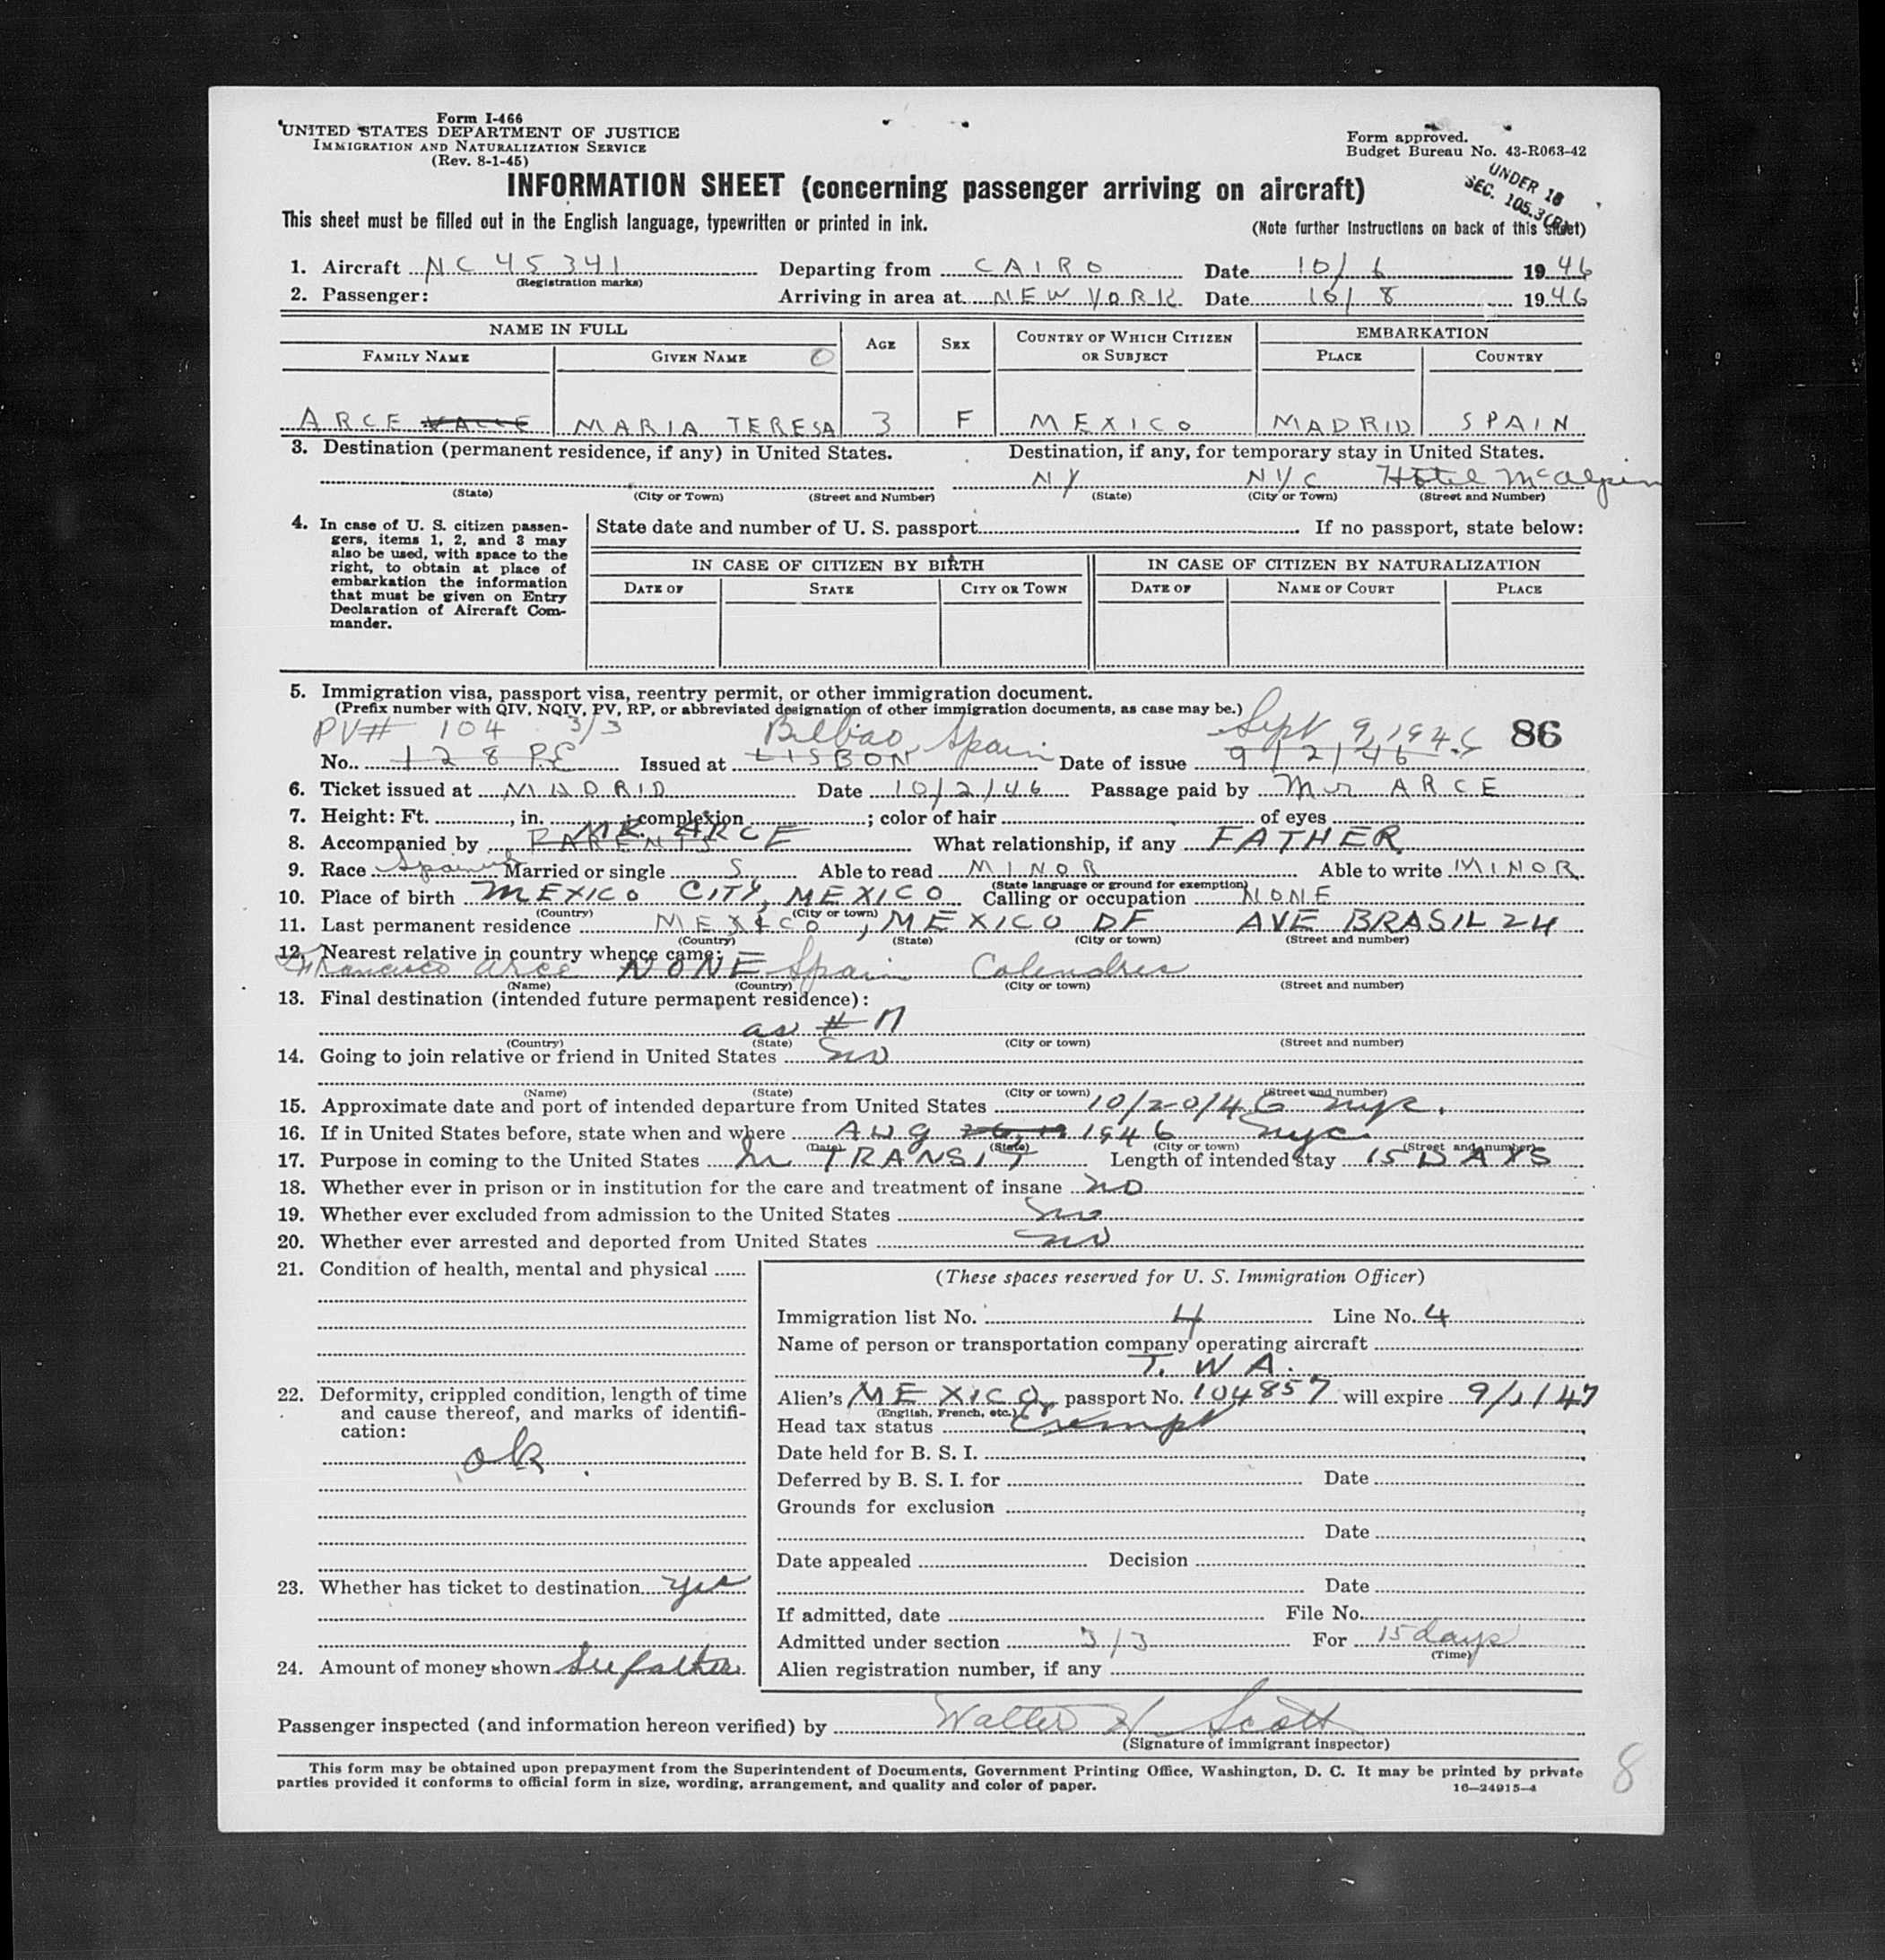 Form I-466
UNITED STATES DEPARTMENT OF JUSTICE
IMMIGRATION AND NATURALIZATION SERVICE
(Rev. 8-1-45)
Form approved.
Budget Bureau No. 43-R063-42
UNDER 16
SEC. 105.3
INFORMATION SHEET (concerning passenger arriving on aircraft)
This sheet must be filled out in the English language, typewritten or printed in ink.
(Note further instructions on back of this sheet)
1. Aircraft NC 45341 Departing from CAIRO Date 10/6 1946
(Registration marks)
2. Passenger: Arriving in area at NEW YORK Date 10/8 1946
NAME IN FULL AGE SEX COUNTRY OF WHICH CITIZEN OR SUBJECT EMBARKATION
FAMILY NAME GIVEN NAME O PLACE COUNTRY
ARCE VALLE MARIA TERESA 3 F MEXICO MADRID SPAIN
3. Destination (permanent residence, if any) in United States. Destination, if any, for temporary stay in United States.
NY NYC Hotel McAlpin
(State) (City or Town) (Street and Number) (State) (City or Town) (Street and Number)
4. In case of U. S. citizen passen-
gers, items 1, 2, and 3 may
also be used, with space to the
right, to obtain at place of
embarkation the information
that must be given on Entry
Declaration of Aircraft Com-
mander.
State date and number of U. S. passport If no passport, state below:
IN CASE OF CITIZEN BY BIRTH IN CASE OF CITIZEN BY NATURALIZATION
DATE OF STATE CITY OR TOWN DATE OF NAME OF COURT PLACE
5. Immigration visa, passport visa, reentry permit, or other immigration document.
(Prefix number with QIV, NQIV, PV, RP, or abbreviated designation of other immigration documents, as case may be.)
PV# 104 3/3 Bilbao, Spain Sept 9, 1946 86
No. 128 PE Issued at LISBON Date of issue 9/2/46
6. Ticket issued at MADRID Date 10/2/46 Passage paid by Mr ARCE
7. Height: Ft. , in. ; complexion ; color of hair of eyes
8. Accompanied by PARENTS MR. ARCE What relationship, if any FATHER
9. Race Spanish Married or single S. Able to read MINOR Able to write MINOR
(State language or ground for exemption)
10. Place of birth MEXICO CITY, MEXICO Calling or occupation NONE
(Country) (City or town)
11. Last permanent residence MEXICO, MEXICO DF AVE BRASIL 24
(Country) (State) (City or town) (Street and number)
12. Nearest relative in country whence came:
Francisco Arce NONE Spain Colendres
(Name) (Country) (City or town) (Street and number)
13. Final destination (intended future permanent residence):
as # 11
(Country) (State) (City or town) (Street and number)
14. Going to join relative or friend in United States no
(Name) (State) (City or town) (Street and number)
15. Approximate date and port of intended departure from United States 10/20/46 nyc.
16. If in United States before, state when and where AUG 1946 nyc
(Date) (State) (City or town) (Street and number)
17. Purpose in coming to the United States In TRANSIT Length of intended stay 15 DAYS
18. Whether ever in prison or in institution for the care and treatment of insane no
19. Whether ever excluded from admission to the United States no
20. Whether ever arrested and deported from United States no
21. Condition of health, mental and physical
22. Deformity, crippled condition, length of time
and cause thereof, and marks of identifi-
cation:
ok
23. Whether has ticket to destination yes
24. Amount of money shown See father
(These spaces reserved for U. S. Immigration Officer)
Immigration list No. 4 Line No. 4
Name of person or transportation company operating aircraft
T. W A.
Alien's MEXICO passport No. 104857 will expire 9/1/47
(English, French, etc.)
Head tax status Exempt
Date held for B. S. I.
Deferred by B. S. I. for Date
Grounds for exclusion
Date
Date appealed Decision
Date
If admitted, date File No.
Admitted under section 3/3 For 15 days
(Time)
Alien registration number, if any
Passenger inspected (and information hereon verified) by Walter H Scott
(Signature of immigrant inspector)
This form may be obtained upon prepayment from the Superintendent of Documents, Government Printing Office, Washington, D. C. It may be printed by private
parties provided it conforms to official form in size, wording, arrangement, and quality and color of paper.
16—24915-4
8